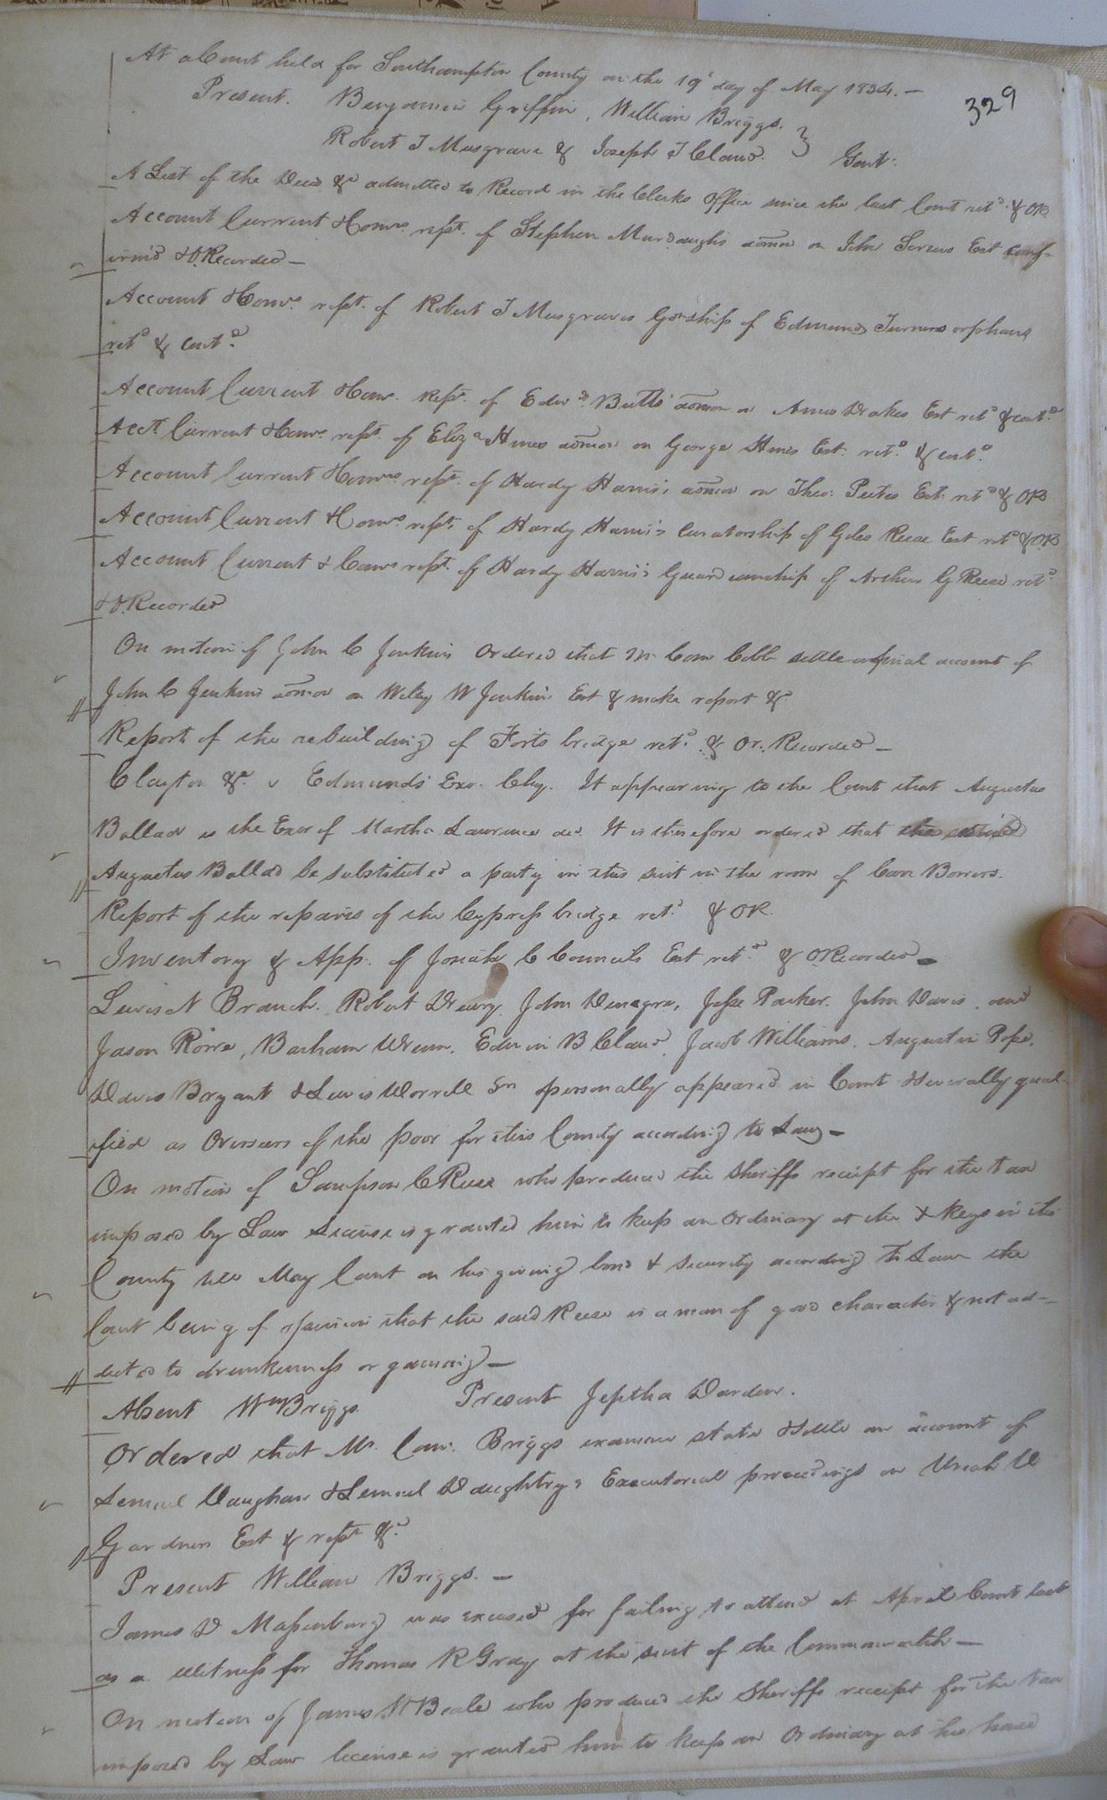 At a Court held for Southampton County on the 19th day of May 1834. —
329
Present. Benjamin Griffin, William Briggs.
Robert T Musgrave & Joseph T Claud. } Gent.
A List of the Deeds &c admitted to Record in the Clerks Office since the last Court retd. & OR
Account Current & Comrs rept. of Stephen Murdaughs admon on John Est conf-
irmd & O. Recorded —
Account & Comrs. rept. of Robert T Musgraves Gdnship of Edmund Turners orphans
retd & contd.
Account Current & Comrs. rept. of Edwd. Butts admon on Drakes Est retd & contd
Acct. Current & Comrs rept. of Eliza Hines admon on George Hines Est. retd. & contd.
Account Current & Comrs rept. of Hardy Harris's admon on Theo: Peetes Est. retd & OR
Account Current & Comrs rept. of Hardy Harris's Curatorship of Giles Reese Est retd & OR
Account Current & Comrs rept. of Hardy Harris's Guardianship of Arthur G Reese retd.
& O. Recorded
On motion of John C Jenkins Ordered that Mr. Com Cobb settle a final account of
John C Jenkins admon on Wiley W Jenkins Est & make report &c
Report of the rebuilding of Forts bridge retd. & Or. Recorded —
Clayton &c. v Edmunds Exr. Chy. It appearing to the Court that Augustus
Ballad is the Exor of Martha Lawrence dec. It is therefore ordered that
Augustus Ballad be substituted a party in this suit in the room of Carr Bowers.
Report of the repairs of the Cypress bridge retd. & OR.
Inventory & App. of Josiah C Councils Est retd. & O. Recorded —
Lewis N Branch. Robert Drewry, John Denegre, Jesse Parker. John Davis, and
Jason Rowe, Barham Wrenn. Edwin B Claud, Jacob Williams. Augustin Pope,
Davis Bryant & Lewis Worrell Sr personally appeared in Court & severally qual-
ified as Overseers of the poor for this County according to Law —
On motion of Sampson C Reese who produced the Sheriffs receipt for the tax
imposed by Law License is granted him to keep an Ordinary at the X Keys in this
County till May Court on his giving bond & security according to Law the
Court being of opinion that the said Reese is a man of good character & not ad-
dicted to drunkenness or gaming —
Absent Wm Briggs Present Jeptha Darden.
Ordered that Mr. Com. Briggs examine state & settle an account of
Lemuel Vaughan & Lemuel Daughtry's Executorial proceedings on Uriah D
Gardners Est & rept &c.
Present William Briggs. —
James D Massenburg was excused for failing to attend at April Court last
as a Witness for Thomas R Gray at the suit of the Commonwealth —
On motion of James N Beale who produced the Sheriffs receipt for the tax
imposed by Law license is granted him to keep an Ordinary at his house